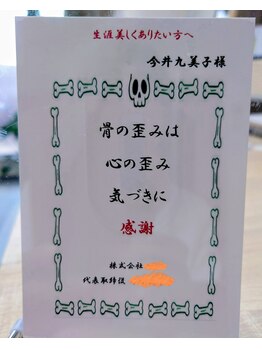 生涯美しくありたい方へ
今井九美子様
骨の歪みは
心の歪み
気づきに
感謝
株式会社
代表取締役